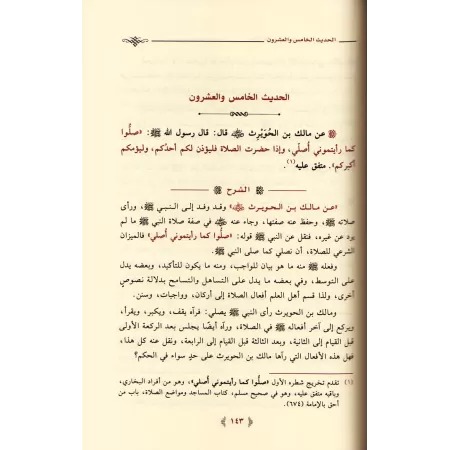 الحديث الخامس والعشرون
الحديث الخامس والعشرون
عن مالك بن الحُوَيْرِث ﷺ قال: قال رسول الله ﷺ: «صلُّوا
كما رأيتموني أُصلّي، وإذا حضرت الصلاة فليؤذن لكم أحدُكم، وليؤمكم
أكبركم». متفق عليه(١).
الشرح
«عن مالك بن الحويرث» وفد وفد إلى النبي ﷺ، ورأى
صلاته ﷺ، وحفظ عنه صفتها، وجاء عنه في صفة صلاة النبي ﷺ ما لم
يرد عن غيره، فنقل عن النبي ﷺ قوله: «صلُّوا كما رأيتموني أُصلي» فالميزان
الشرعي للصلاة، أن نصلي كما صلى النبي ﷺ.
وفعله ﷺ منه ما هو بيان للواجب، ومنه ما يكون للتأكيد، وبعضه يدل
على التوسط، وفي بعضه ما يدل على التساهل والتسامح بدلالة نصوصٍ
أخرى، ولذا قسم أهل العلم أفعال الصلاة إلى أركان، وواجبات، وسنن.
ومالك بن الحويرث رأى النبي ﷺ يصلي: فرآه يقف، ويكبر، ويقرأ،
ويركع إلى آخر أفعاله ﷺ في الصلاة، ورآه أيضًا يجلس بعد الركعة الأولى
قبل القيام إلى الثانية، وبعد الثالثة قبل القيام إلى الرابعة، ونقل عنه كل هذا،
فهل هذه الأفعال التي رآها مالك بن الحويرث على حدٍ سواء في الحكم؟
(١) تقدم تخريج شطره الأول «صلُّوا كما رأيتموني أصلي»، وهو من أفراد البخاري،
وباقيه متفق عليه، وهو في صحيح مسلم، كتاب المساجد ومواضع الصلاة، باب من
أحق بالإمامة (٦٧٤)
١٤٣